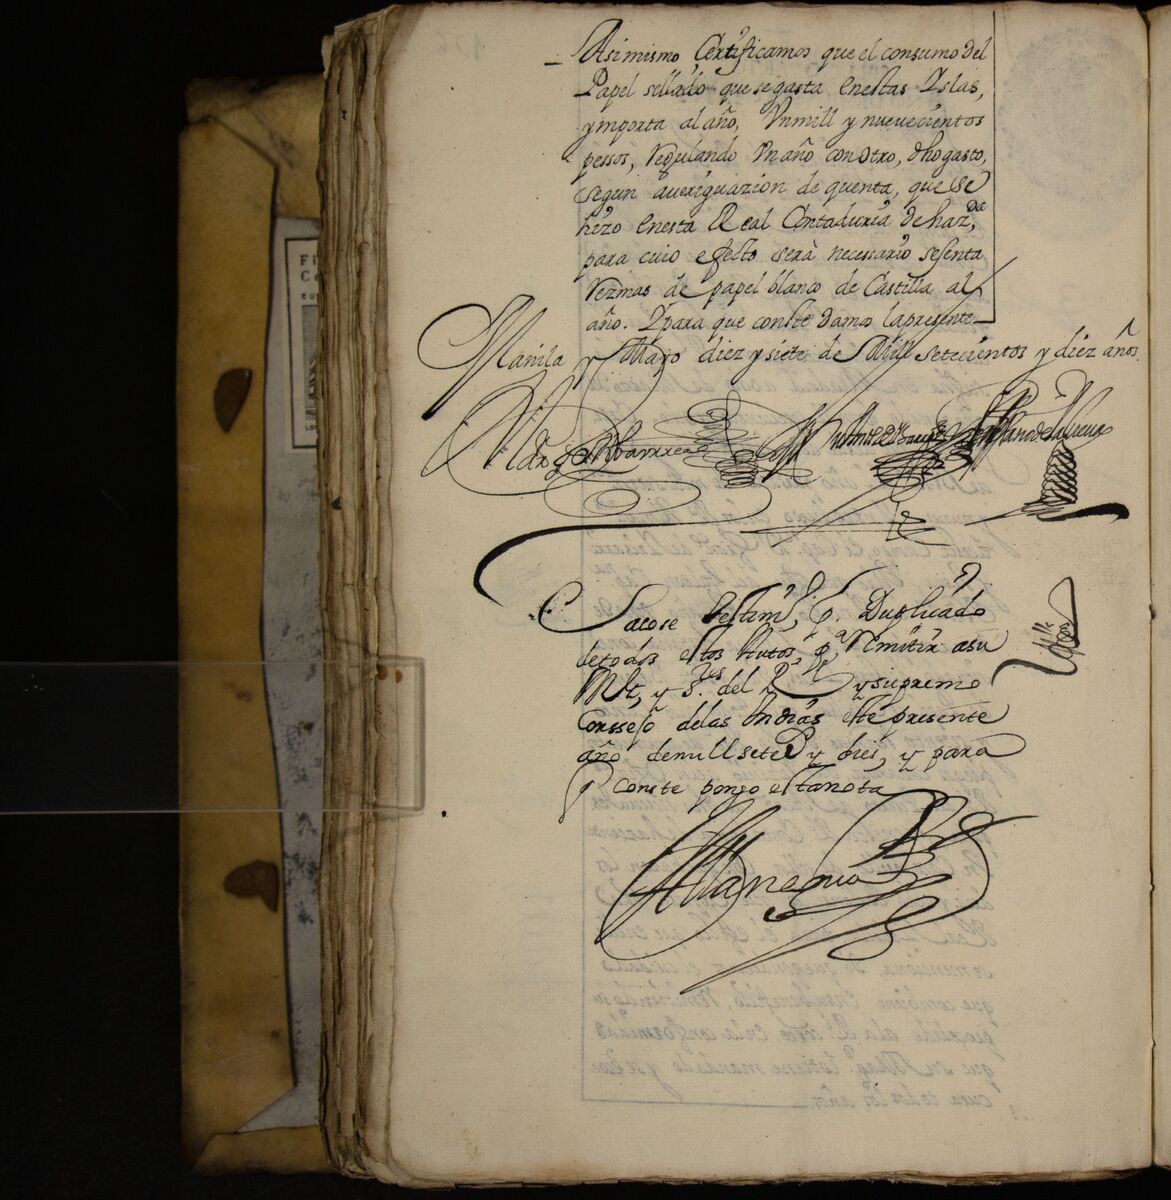 Asimismo, Certificamos que el consumo del
Papel sellado que se gasta enestas Yslas,
ymporta al año, Vnmill y nuevecientos
pessos, regulando un año con otro, dho gasto,
segun aueriguazion de quenta, que se
hizo enesta Real Contaduria de haz.da
para cuio efecto serà necessario sesenta
rezmas de papel blanco de Castilla al
año. Y para que conste damos lapresente
Manila y Mayo diez y siete de Mill setecientos y diez años.
Sacose testim.o, Duplicado
detodos estos Autos, p.a Remitir asu
Mg.d, y s.res del R.l y supremo
Conssejo delas Indias este presente
año demill sete.s y dies, y para
q conste pongo esta nota